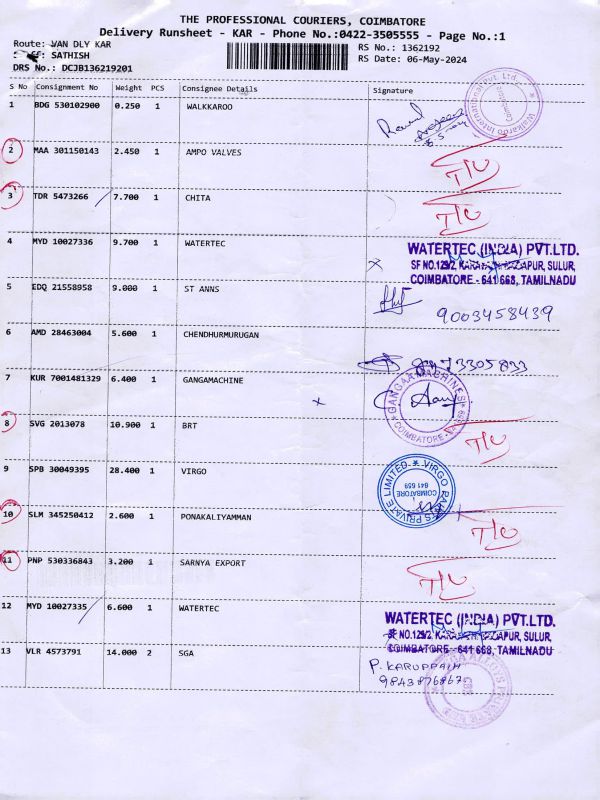 THE PROFESSIONAL COURIERS, COIMBATORE
Delivery Runsheet - KAR - Phone No.:0422-3505555 - Page No.:1
Route: VAN DLY KAR
RS No.: 1362192
: SATHISH
RS Date: 06-May-2024
DRS No.: DCJB136219201
S No Consignment No Weight PCS Consignee Details Signature
1 BDG 530102900 0.250 1 WALKKAROO
2 MAA 301150143 2.450 1 AMPO VALVES
T/U
3 TDR 5473266 7.700 1 CHITA
T/U
4 MYD 10027336 9.700 1 WATERTEC
WATERTEC (INDIA) PVT.LTD.
SF NO.129/2, SULUR,
COIMBATORE - 641 668, TAMILNADU
5 EDQ 21558958 9.000 1 ST ANNS
9003458439
6 AMD 28463004 5.600 1 CHENDHURMURUGAN
7 KUR 7001481329 6.400 1 GANGAMACHINE
8 SVG 2013078 10.900 1 BRT
T/U
9 SPB 30049395 28.400 1 VIRGO
10 SLM 345250412 2.600 1 PONAKALIYAMMAN
T/U
11 PNP 530336843 3.200 1 SARNYA EXPORT
T/U
12 MYD 10027335 6.600 1 WATERTEC
WATERTEC (INDIA) PVT.LTD.
SF NO.129/2, SULUR,
COIMBATORE - 641 668, TAMILNADU
13 VLR 4573791 14.000 2 SGA
P. KARUPPAIH
9843876867